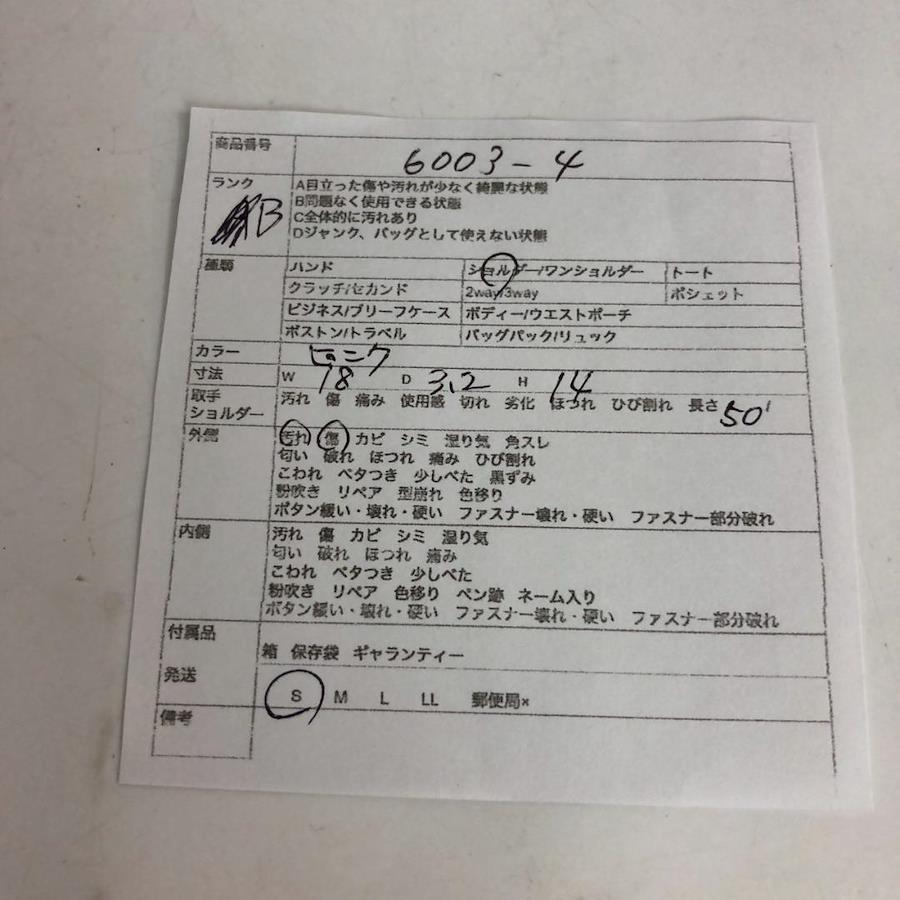 商品番号 6003-4
ランク B
A目立った傷や汚れが少なく綺麗な状態
B問題なく使用できる状態
C全体的に汚れあり
Dジャンク、バッグとして使えない状態
種類 ハンド ショルダー/ワンショルダー トート
クラッチ/セカンド 2way/3way ポシェット
ビジネス/ブリーフケース ボディー/ウエストポーチ
ボストン/トラベル バッグパック/リュック
カラー ピンク
寸法 W 18 D 3.2 H 14
取手 汚れ 傷 痛み 使用感 切れ 劣化 ほつれ ひび割れ 長さ 50
ショルダー
外側 汚れ 傷 カビ シミ 湿り気 角スレ
匂い 破れ ほつれ 痛み ひび割れ
こわれ ベタつき 少しべた 黒ずみ
粉吹き リペア 型崩れ 色移り
ボタン緩い・壊れ・硬い ファスナー壊れ・硬い ファスナー部分破れ
内側 汚れ 傷 カビ シミ 湿り気
匂い 破れ ほつれ 痛み
こわれ ベタつき 少しべた
粉吹き リペア 色移り ペン跡 ネーム入り
ボタン緩い・壊れ・硬い ファスナー壊れ・硬い ファスナー部分破れ
付属品 箱 保存袋 ギャランティー
発送 S M L LL 郵便局×
備考